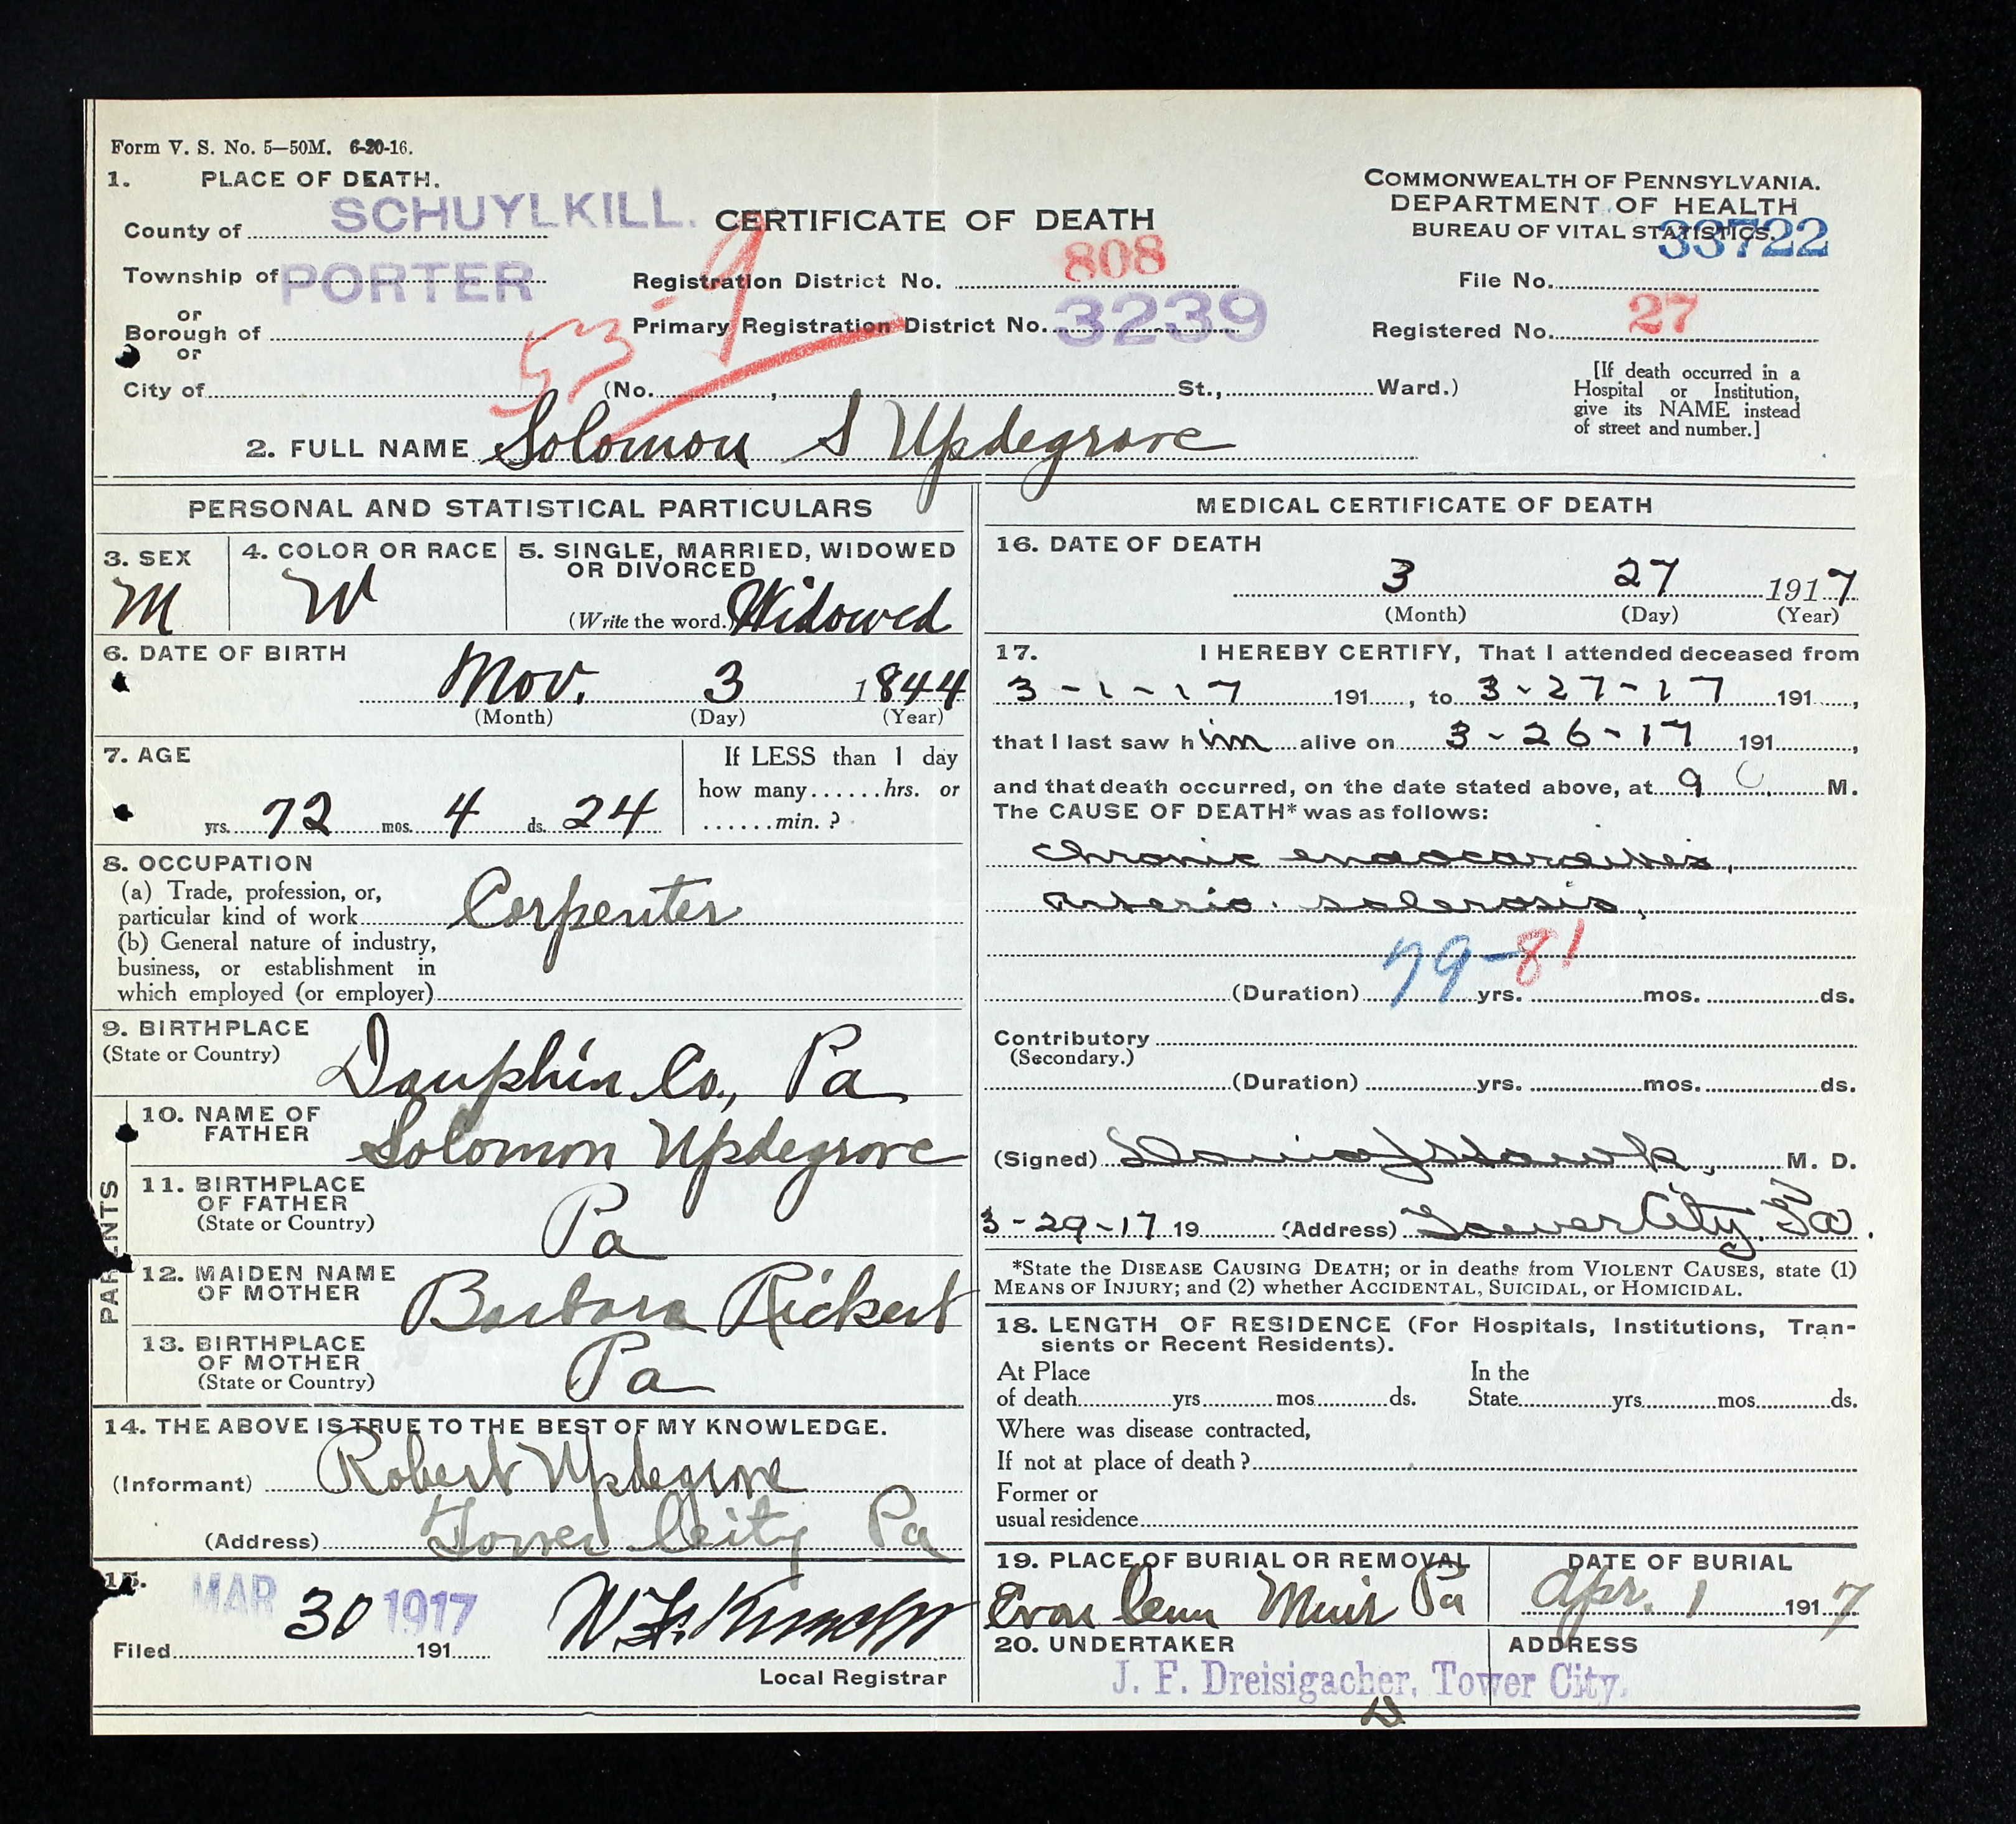 Form V. S. No. 5—50M. 6-20-16.
1. PLACE OF DEATH.
County of SCHUYLKILL.
Township of PORTER
or
Borough of
or
City of
CERTIFICATE OF DEATH
Registration District No. 808
Primary Registration District No. 3239
53-9
(No. , St., Ward.)
COMMONWEALTH OF PENNSYLVANIA.
DEPARTMENT OF HEALTH
BUREAU OF VITAL STATISTICS.
33722
File No.
Registered No. 27
[If death occurred in a
Hospital or Institution,
give its NAME instead
of street and number.]
2. FULL NAME Solomon S Updegrove
PERSONAL AND STATISTICAL PARTICULARS
3. SEX
M
4. COLOR OR RACE
W
5. SINGLE, MARRIED, WIDOWED
OR DIVORCED
(Write the word.) Widowed
6. DATE OF BIRTH
Nov. 3 1844
(Month) (Day) (Year)
7. AGE
yrs. 72 mos. 4 ds. 24
If LESS than 1 day
how many......hrs. or
......min. ?
8. OCCUPATION
(a) Trade, profession, or,
particular kind of work Carpenter
(b) General nature of industry,
business, or establishment in
which employed (or employer)
9. BIRTHPLACE
(State or Country)
Dauphin Co., Pa
PARENTS
10. NAME OF
FATHER
Solomon Updegrove
11. BIRTHPLACE
OF FATHER
(State or Country)
Pa
12. MAIDEN NAME
OF MOTHER
Barbara Rickert
13. BIRTHPLACE
OF MOTHER
(State or Country)
Pa
14. THE ABOVE IS TRUE TO THE BEST OF MY KNOWLEDGE.
(Informant) Robert Updegrove
(Address) Tower City Pa
15.
MAR 30 1917
Filed 191
Local Registrar
MEDICAL CERTIFICATE OF DEATH
16. DATE OF DEATH
3 27 1917
(Month) (Day) (Year)
17. I HEREBY CERTIFY, That I attended deceased from
3-1-17 191 , to 3-27-17 191 ,
that I last saw him alive on 3-26-17 191 ,
and that death occurred, on the date stated above, at 9 M.
The CAUSE OF DEATH* was as follows:
Chronic endocarditis,
Arterio. sclerosis,
79-81
(Duration) yrs. mos. ds.
Contributory
(Secondary.)
(Duration) yrs. mos. ds.
(Signed) M. D.
3-29-17 19 (Address) Tower City, Pa.
*State the DISEASE CAUSING DEATH; or in deaths from VIOLENT CAUSES, state (1)
MEANS OF INJURY; and (2) whether ACCIDENTAL, SUICIDAL, or HOMICIDAL.
18. LENGTH OF RESIDENCE (For Hospitals, Institutions, Tran-
sients or Recent Residents).
At Place In the
of death yrs. mos. ds. State yrs. mos. ds.
Where was disease contracted,
If not at place of death?
Former or
usual residence
19. PLACE OF BURIAL OR REMOVAL
Evan Cem Muir Pa
DATE OF BURIAL
Apr. 1 1917
20. UNDERTAKER
ADDRESS
J. F. Dreisigacher, Tower City.